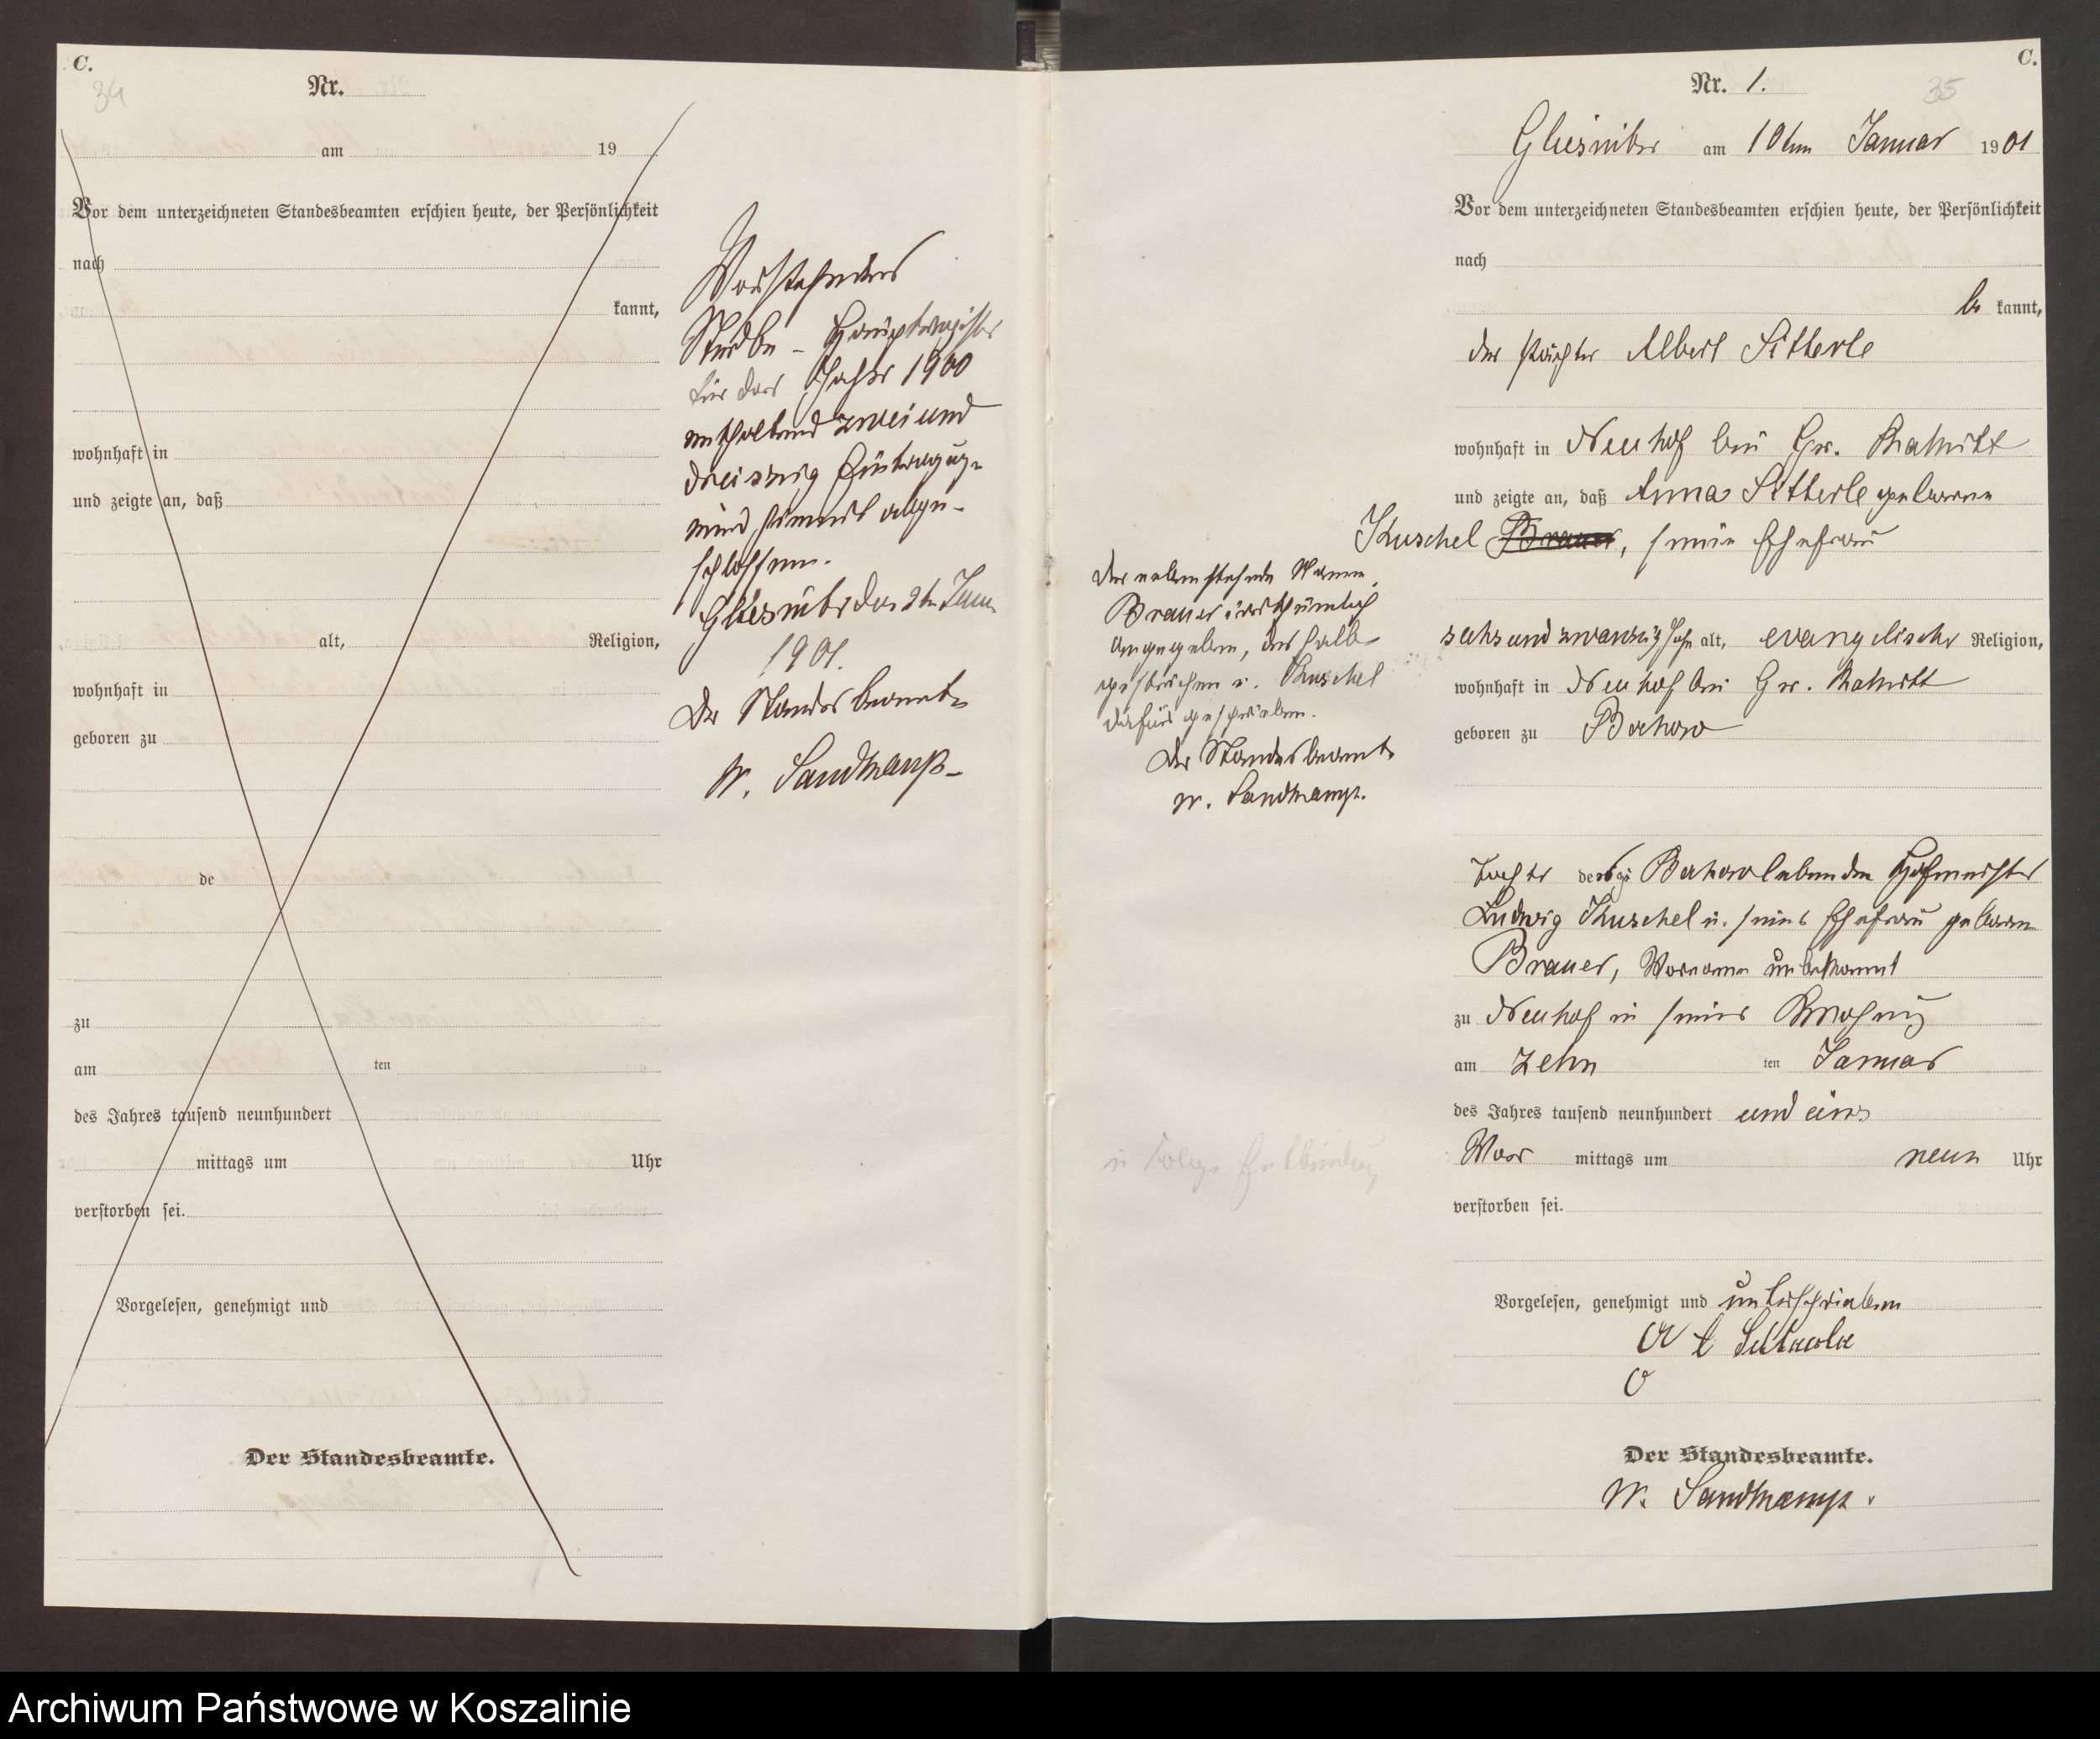 C.
34
Nr.
am 19
Vor dem unterzeichneten Standesbeamten erschien heute, der Persönlichkeit
nach
kannt,
wohnhaft in
und zeigte an, daß
alt, Religion,
wohnhaft in
geboren zu
de
zu
am ten
des Jahres tausend neunhundert
mittags um Uhr
verstorben sei.
Vorgelesen, genehmigt und
Der Standesbeamte.
Vorstehendes
Sterbe - Hauptregister
für das Jahr 1900
enthaltend zwei und
dreiszig Eintragun-
wird hiermit abge-
schlossen.
1901.
Der Standesbeamte
W. Sandkamp
C.
35
Nr. 1.
Gliesnitz am 10ten Januar 1901
Vor dem unterzeichneten Standesbeamten erschien heute, der Persönlichkeit
nach
be kannt,
der Pächter Albert Sitterle
wohnhaft in Neuhof bei Gr.
und zeigte an, daß Anna Sitterle geborene
Kuschel Brauer, seine Ehefrau
sechs und zwanzig Jahr alt, evangelischer Religion,
wohnhaft in Neuhof bei Gr.
geboren zu
Tochter des zu lebenden Hofmeister
Ludwig Kuschel u. seiner Ehefrau geborene
Brauer, Vorname unbekannt
zu Neuhof in seiner Wohnung
am zehn ten Januar
des Jahres tausend neunhundert und eins
Vor mittags um neun Uhr
verstorben sei.
Vorgelesen, genehmigt und unterschrieben
Sitterle
Der Standesbeamte.
W. Sandkamp.
Der nebenstehende Name
Brauer irrthümlich
angegeben, deshalb
gestrichen u. Kuschel
dafür geschrieben.
Der Standesbeamte
W. Sandkamp.
in Folge Entbindung
Archiwum Państwowe w Koszalinie